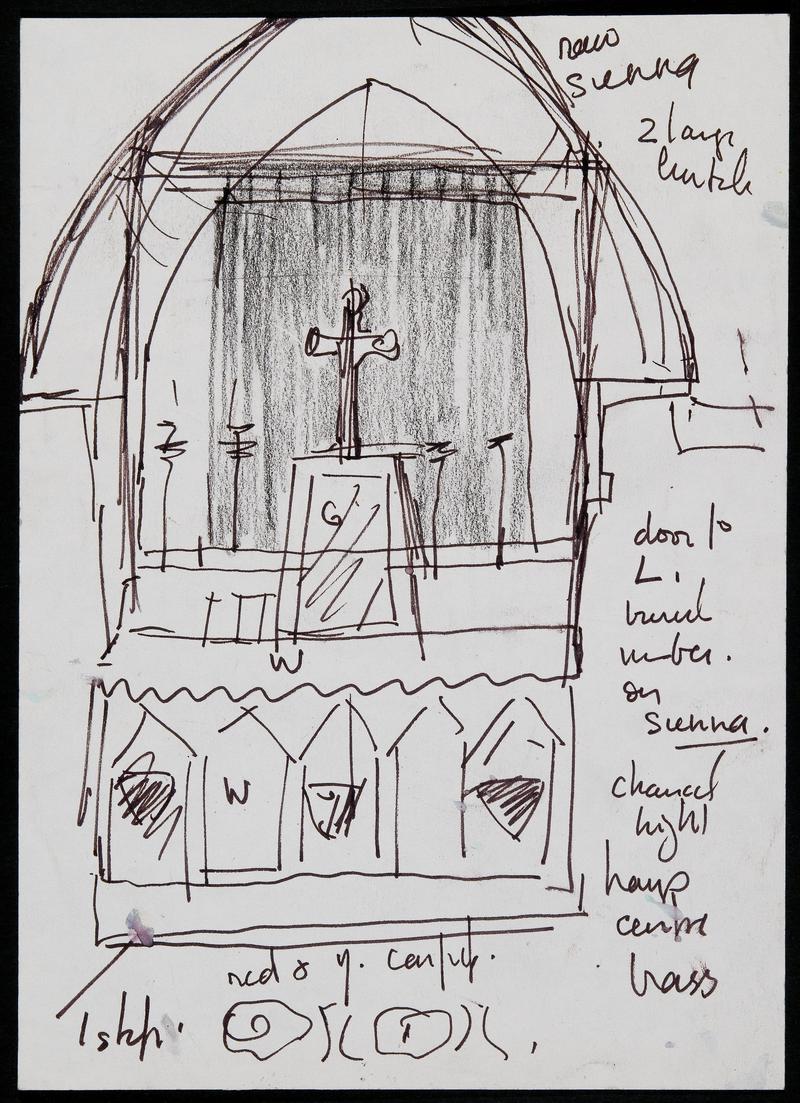 raw
sienna
2 large
door to
L.
burnt
umber.
on
sienna.
chancel
light
hangs
centre
brass
G
W
W
red & y.
1 step.